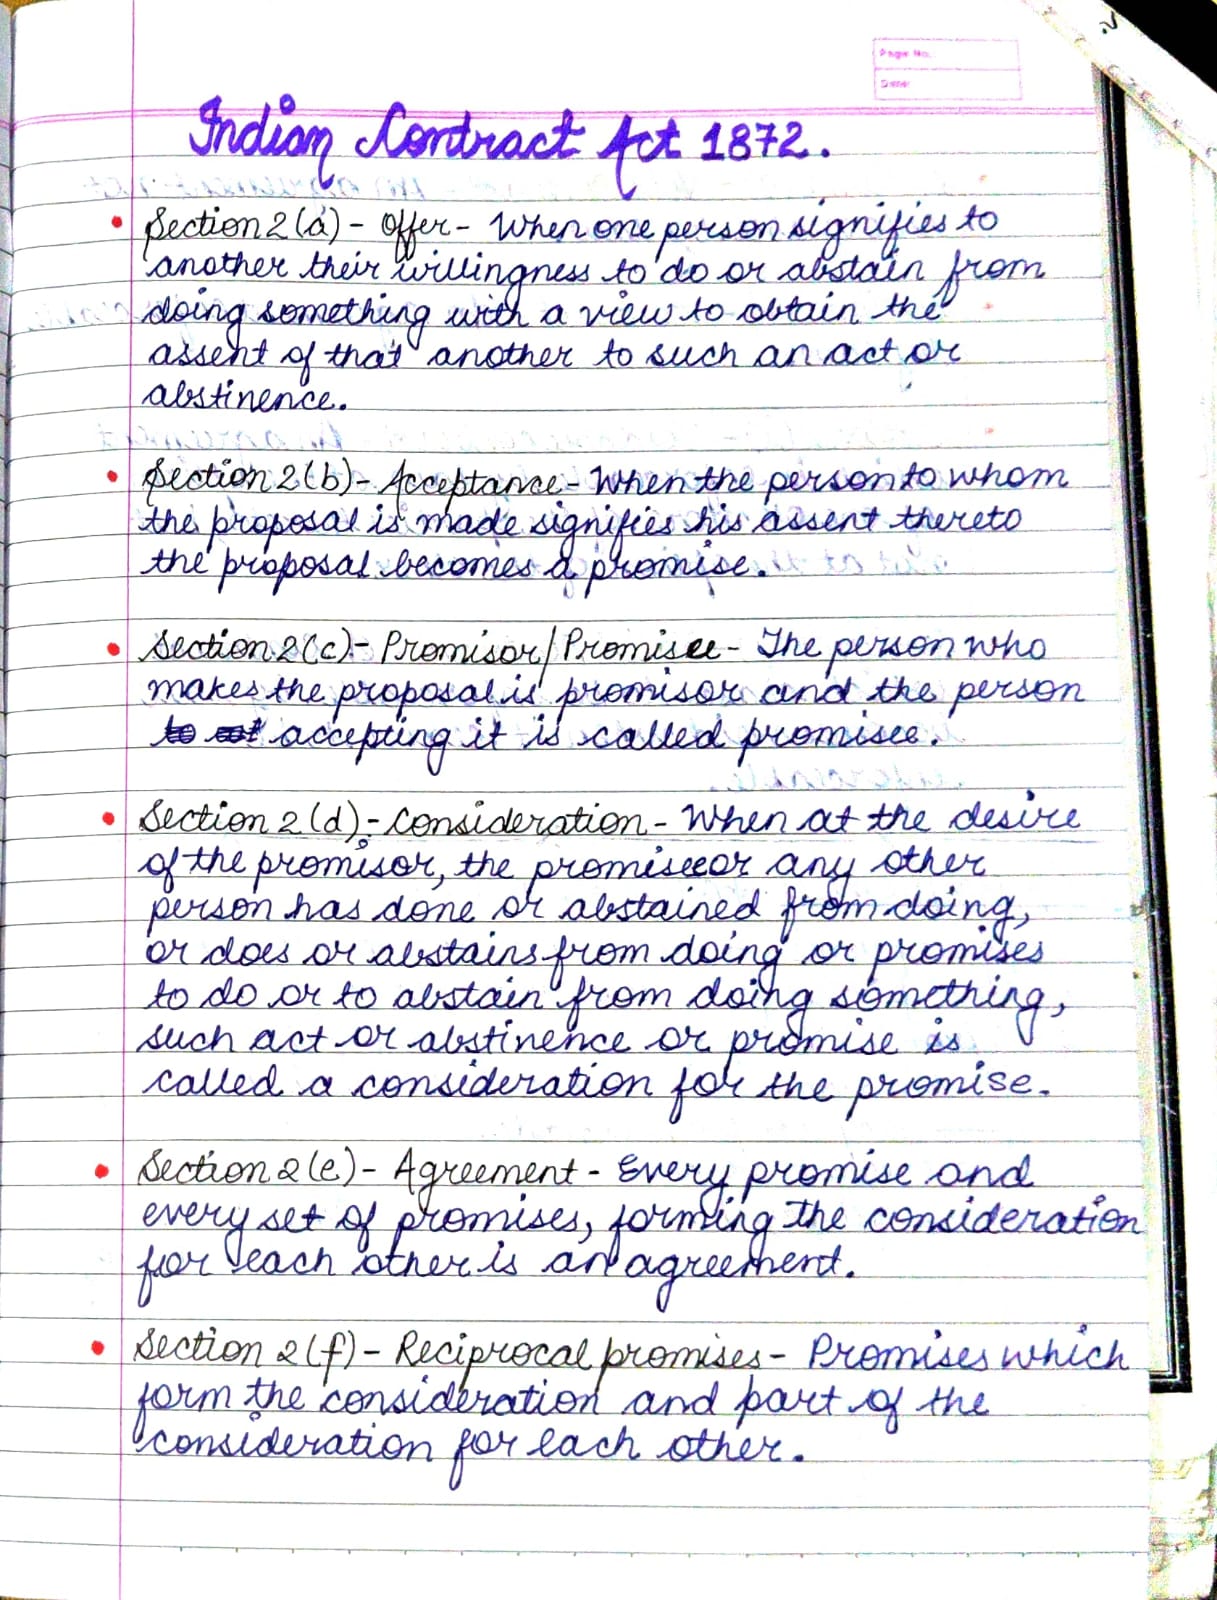 Page No.
Date
Indian Contract Act 1872.
• Section 2(a) - Offer - When one person signifies to
another their willingness to do or abstain from
doing something with a view to obtain the
assent of that another to such an act or
abstinence.
• Section 2(b) - Acceptance - When the person to whom
the proposal is made signifies his assent thereto
the proposal becomes a promise.
• Section 2(c) - Promisor/Promisee - The person who
makes the proposal is promisor and the person
to accepting it is called promisee.
• Section 2(d) - Consideration - When at the desire
of the promisor, the promisee or any other
person has done or abstained from doing,
or does or abstains from doing or promises
to do or to abstain from doing something,
such act or abstinence or promise is
called a consideration for the promise.
• Section 2(e) - Agreement - Every promise and
every set of promises, forming the consideration
for each other is an agreement.
• Section 2(f) - Reciprocal promises - Promises which
form the consideration and part of the
consideration for each other.